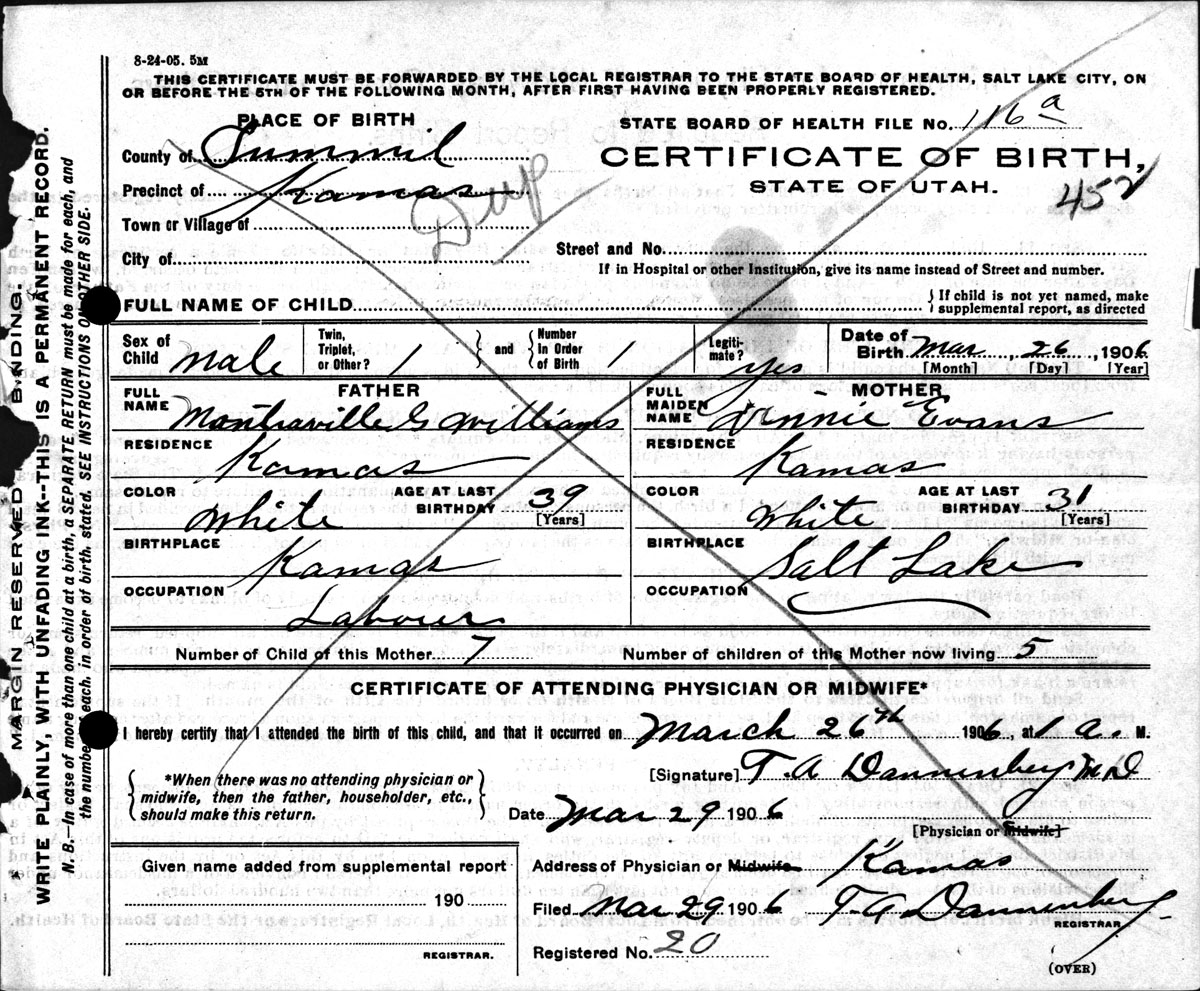 8-24-05. 5M
THIS CERTIFICATE MUST BE FORWARDED BY THE LOCAL REGISTRAR TO THE STATE BOARD OF HEALTH, SALT LAKE CITY, ON
OR BEFORE THE 5TH OF THE FOLLOWING MONTH, AFTER FIRST HAVING BEEN PROPERLY REGISTERED.
PLACE OF BIRTH
STATE BOARD OF HEALTH FILE No. 116a
County of Summit
CERTIFICATE OF BIRTH,
Precinct of Kamas
STATE OF UTAH.
452
Dup
Town or Village of
Street and No.
City of
If in Hospital or other Institution, give its name instead of Street and number.
FULL NAME OF CHILD
} If child is not yet named, make
supplemental report, as directed
Sex of Child Male
Twin, Triplet, or Other? 1
} and { Number in Order of Birth 1
Legiti-mate? yes
Date of Birth Mar 26, 1906
[Month] [Day] [Year]
FATHER
MOTHER
FULL NAME Montraville G Williams
FULL MAIDEN NAME Jennie Evans
RESIDENCE Kamas
RESIDENCE Kamas
COLOR White AGE AT LAST BIRTHDAY 39 [Years]
COLOR White AGE AT LAST BIRTHDAY 31 [Years]
BIRTHPLACE Kamas
BIRTHPLACE Salt Lake
OCCUPATION Labourer
OCCUPATION
Number of Child of this Mother 7
Number of children of this Mother now living 5
CERTIFICATE OF ATTENDING PHYSICIAN OR MIDWIFE*
I hereby certify that I attended the birth of this child, and that it occurred on March 26th 1906, at 1 a. M.
{ *When there was no attending physician or
midwife, then the father, householder, etc.,
should make this return. }
[Signature] T. A Dannenberg MD
Date Mar 29 1906
[Physician or Midwife]
Given name added from supplemental report
190
REGISTRAR.
Address of Physician or Midwife. Kamas
Filed Mar 29 1906 T A Dannenberg
REGISTRAR
Registered No. 20
(OVER)
MARGIN RESERVED FOR BINDING.
WRITE PLAINLY, WITH UNFADING INK--THIS IS A PERMANENT RECORD.
N. B.—In case of more than one child at a birth, a SEPARATE RETURN must be made for each, and
the number of each, in order of birth, stated. SEE INSTRUCTIONS ON OTHER SIDE.